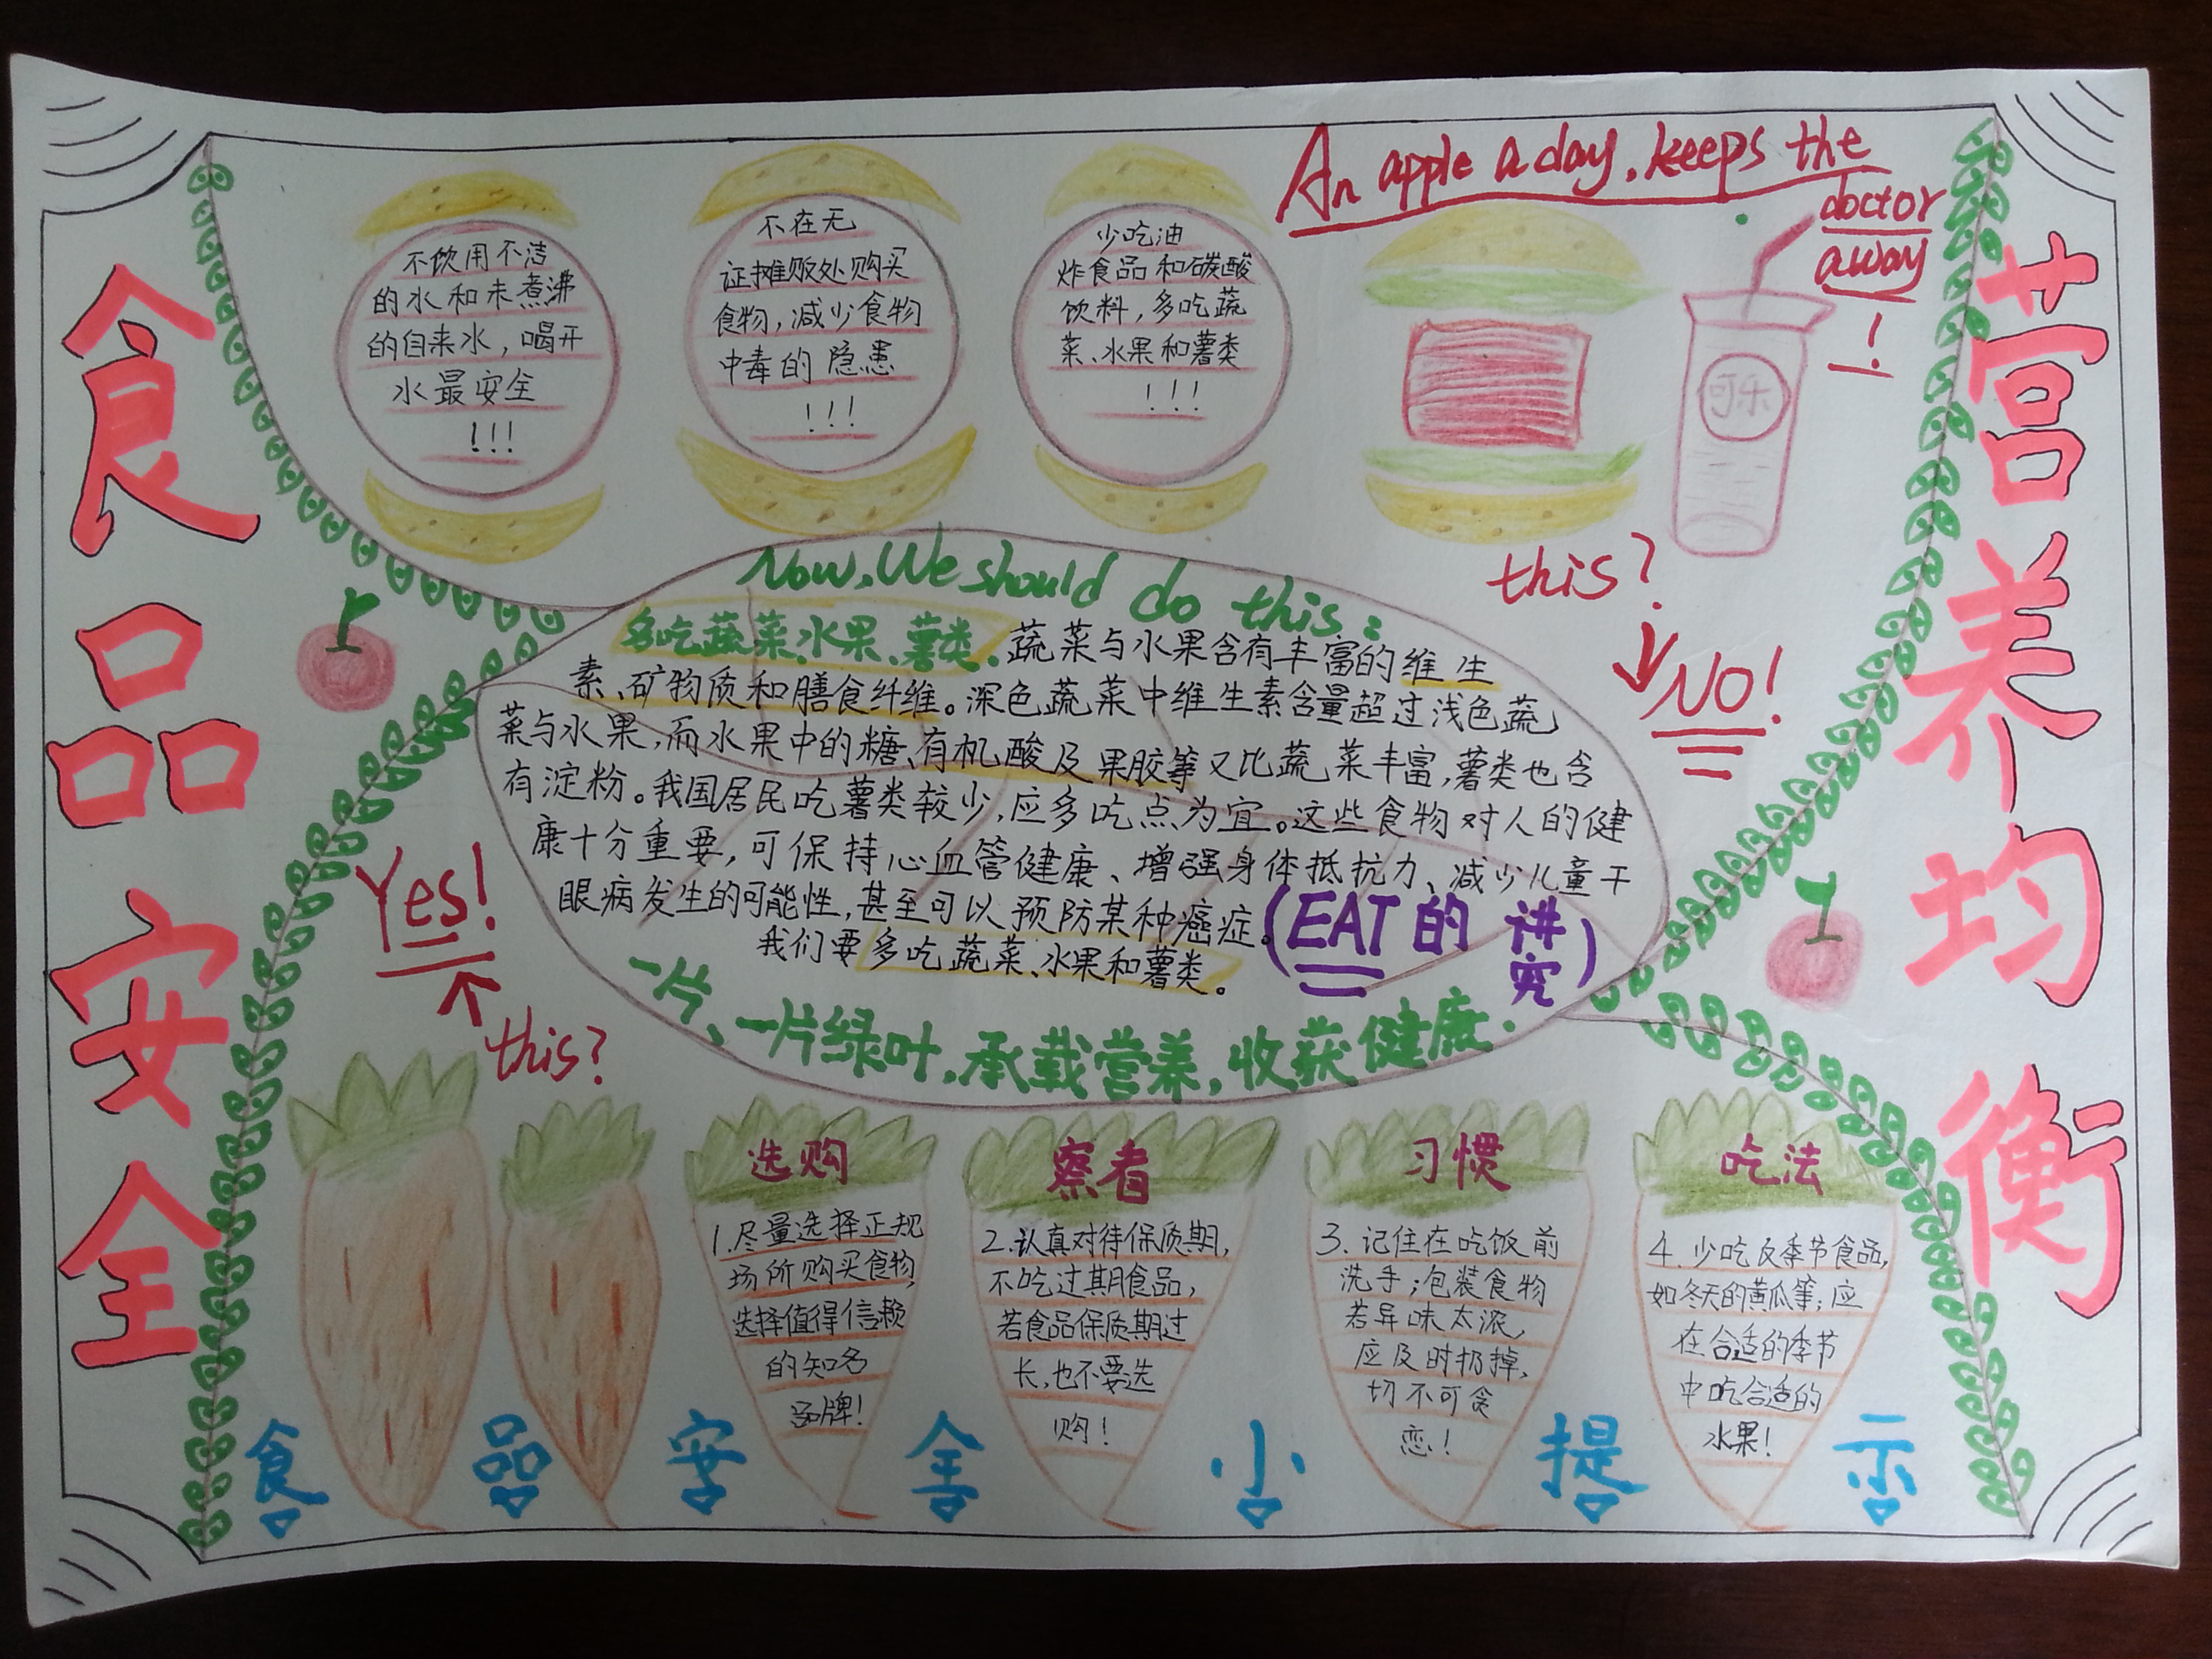 食品安全
营养均衡
An apple a day, keeps the
doctor
away
!
不饮用不洁
的水和未煮沸
的自来水，喝开
水最安全
!!!
不在无
证摊贩处购买
食物，减少食物
中毒的隐患
!!!
少吃油
炸食品和碳酸
饮料，多吃蔬
菜、水果和薯类
!!!
可乐
this?
NO!
Now, We should do this:
多吃蔬菜、水果、薯类、蔬菜与水果含有丰富的维生
素、矿物质和膳食纤维。深色蔬菜中维生素含量超过浅色蔬
菜与水果，而水果中的糖、有机酸及果胶等又比蔬菜丰富，薯类也含
有淀粉。我国居民吃薯类较少，应多吃点为宜。这些食物对人的健
康十分重要，可保持心血管健康、增强身体抵抗力、减少儿童干
眼病发生的可能性，甚至可以预防某种癌症。
我们要多吃蔬菜、水果和薯类。
(EAT的讲究)
一片、一片绿叶，承载营养，收获健康.
Yes!
this?
选购
1.尽量选择正规
场所购买食物，
选择值得信赖
的知名
品牌!
察看
2.认真对待保质期，
不吃过期食品，
若食品保质期过
长，也不要选
购!
习惯
3.记住在吃饭前
洗手；包装食物
若异味太浓，
应及时扔掉，
切不可贪
恋!
吃法
4.少吃反季节食品，
如冬天的黄瓜等；应
在合适的季节
中吃合适的
水果!
食品安全小提示